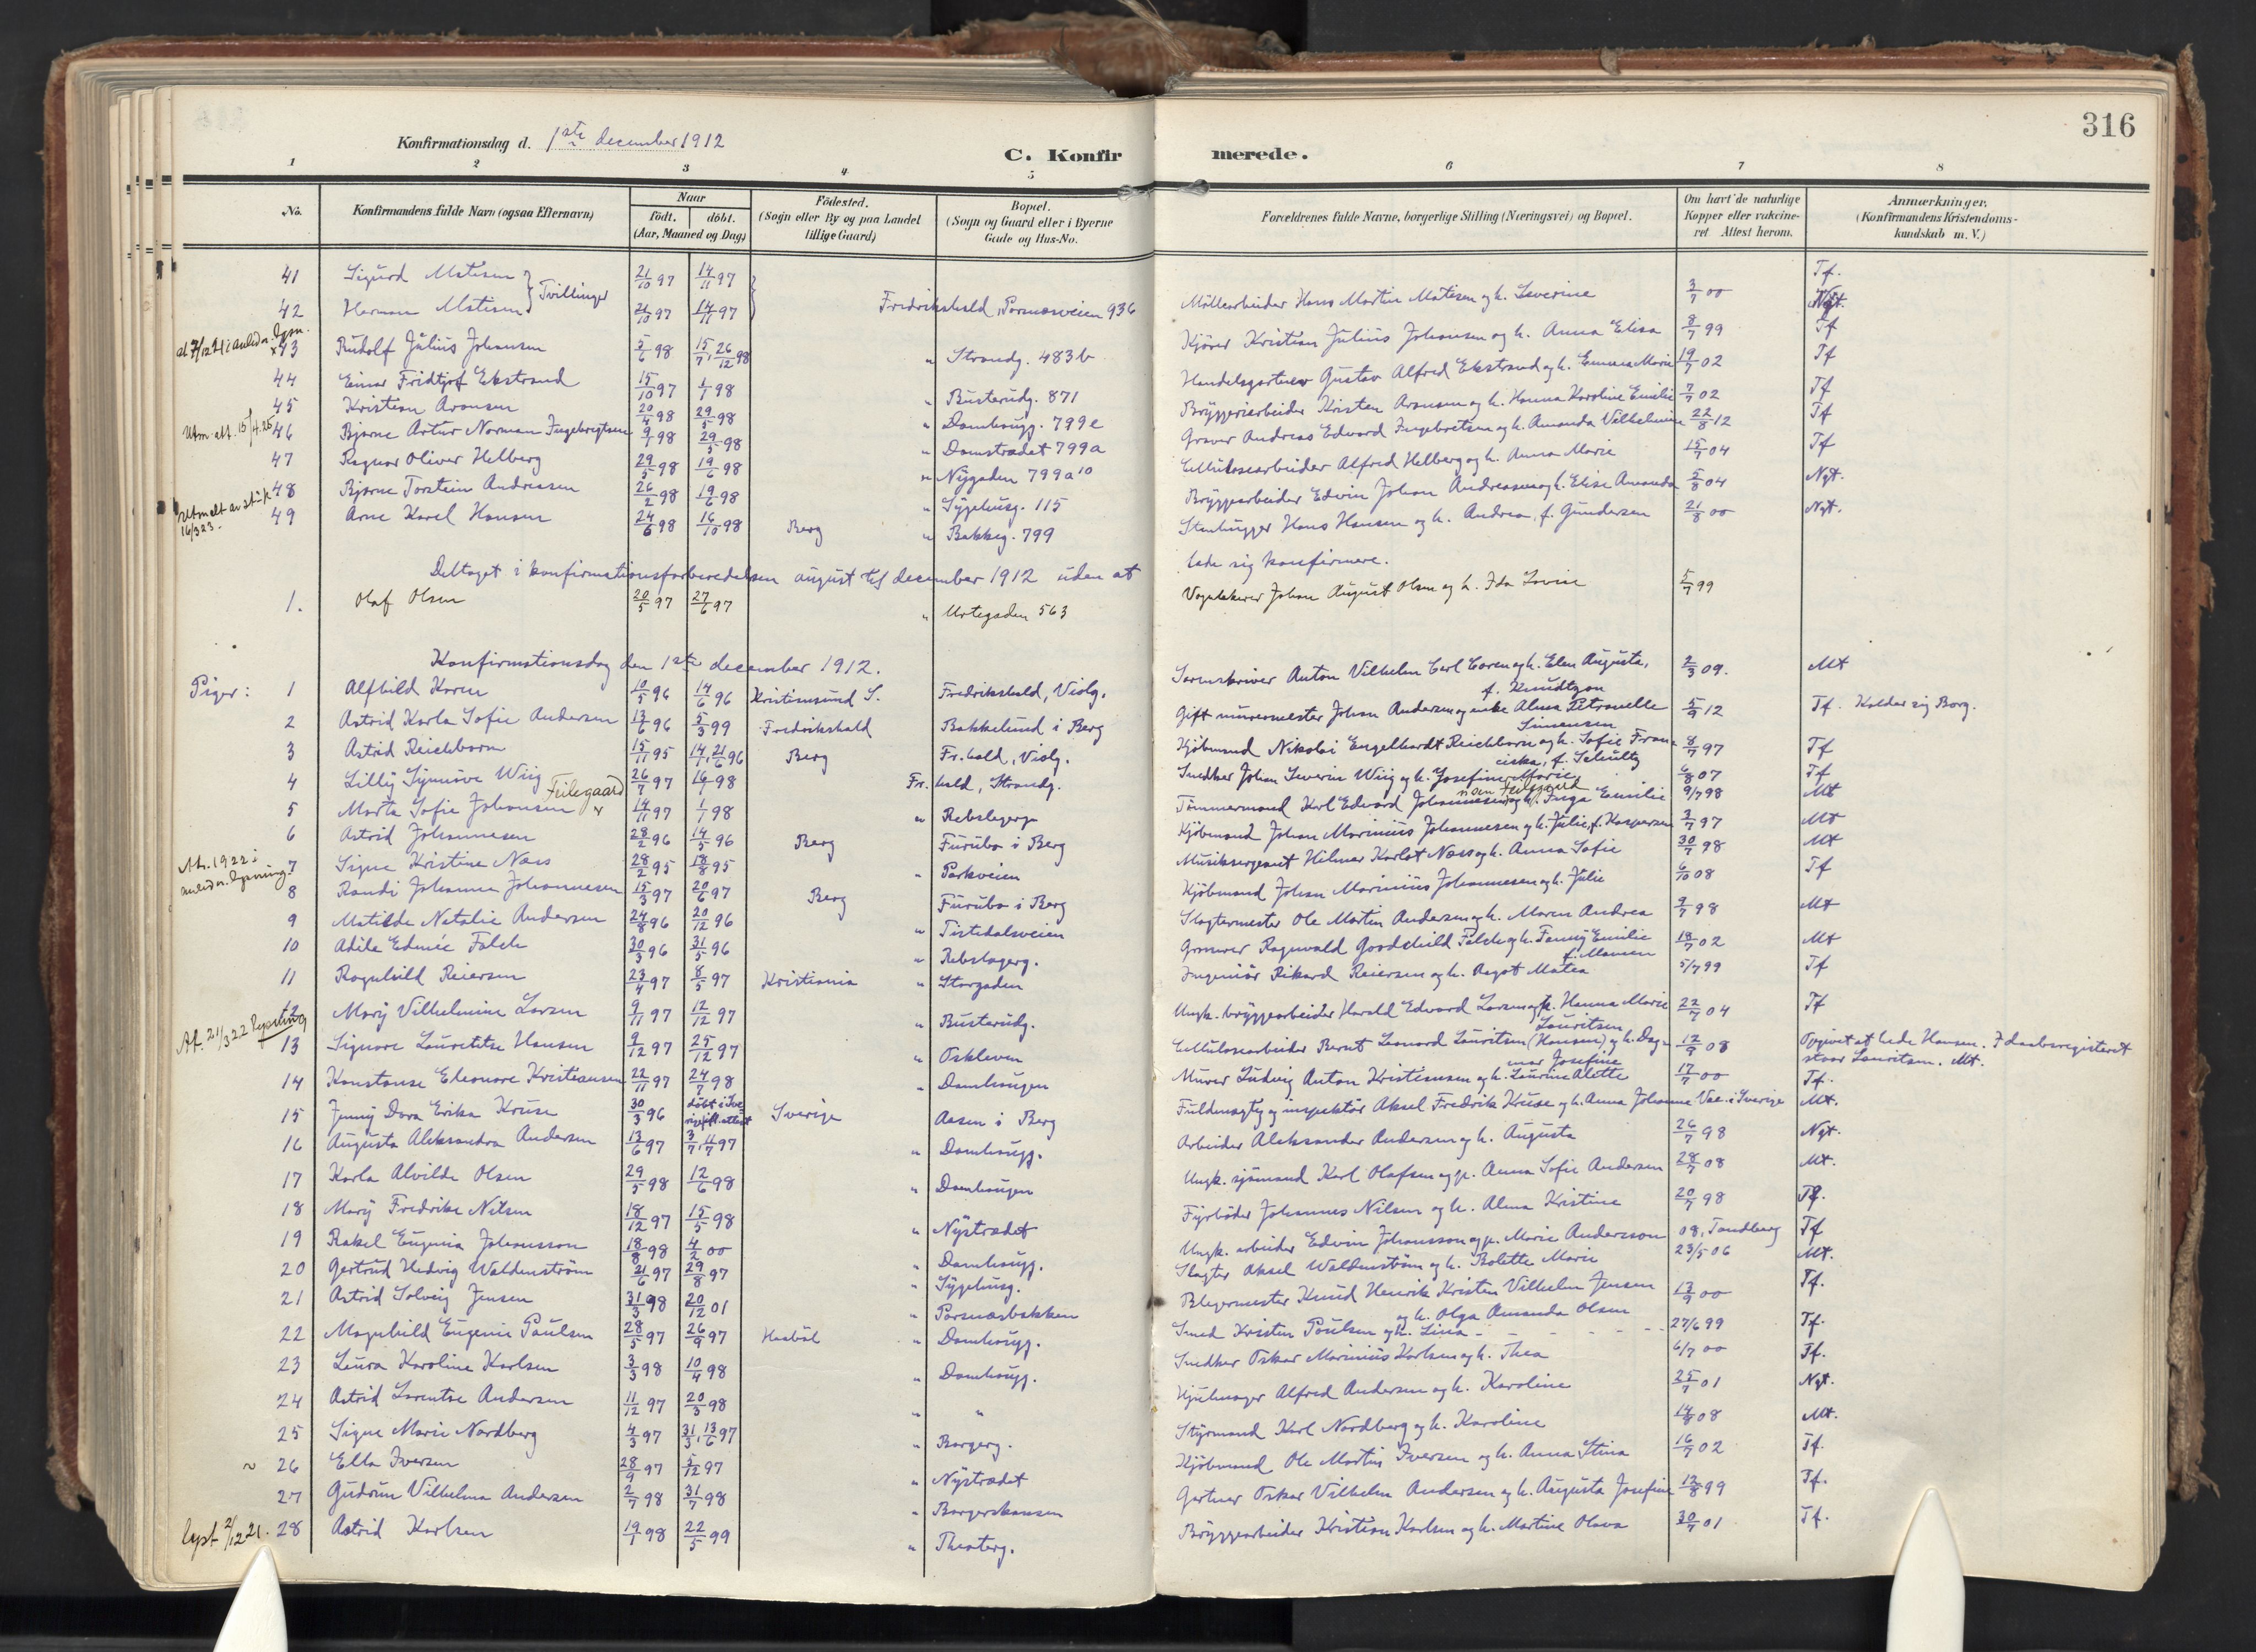 316
Konfirmationsdag d. 1ste december 1912
C. Konfirmerede.
1 2 3 4 5 6 7 8
No. Konfirmandens fulde Navn (ogsaa Efternavn) Naar født. døbt. (Aar, Maaned og Dag) Fødested. (Sogn eller By og paa Landet tillige Gaard) Bopæl. (Sogn og Gaard eller i Byerne Gade og Hus-No. Forældrenes fulde Navne, borgerlige Stilling (Næringsvei) og Bopæl. Om havt de naturlige Kopper eller vakcineret Attest herom. Anmærkninger. (Konfirmandens Kristendomskundskab m. V.)
41 Sigurd Matisen } Tvillinger 21/10 97 14/11 97 Tf.
42 Herman Matisen 21/10 97 14/11 97 Fredrikshald, Porsnæsveien 936 Møllearbeider Hans Martin Matisen og h. Severine 3/7 00 Ngt.
43 Rudolf Julius Johansen 5/6 98 15/7, 26/12 98 " Strandg. 483b Kjører Kristian Julius Johansen og h. Anna Elisa 8/7 99 Tf
44 Einar Fridtjof Ekstrand 15/10 97 1/1 98 " Busterudg. 871 Handelsgartner Gustav Alfred Ekstrand og h. Emma Marie 19/7 02 Tf
45 Kristian Aronsen 20/4 98 29/5 98 " Damhaugg. 799e Bryggeriarbeider Kristen Aronsen og h. Hanna Karoline Emilie 7/7 02 Tf
Utm. att. 15/4.26 46 Bjarne Artur Norman Ingebrigtsen 9/1 98 29/5 98 " Damstrædet 799a Graver Andreas Edvard Ingebretsen og h. Amanda Vilhelmine 22/8 12 Tf
47 Ragnar Oliver Helberg 29/5 98 19/6 98 " Nygaden 799a10 Cellulosearbeider Alfred Helberg og h. Anna Marie 15/7 04 Tf
48 Bjarne Torstein Andreasen 26/2 98 19/6 98 " Sygehusg. 115 Bryggearbeider Edvin Johan Andreasen og h. Elise Amanda 5/8 04 Ngt.
16/3 23. 49 Arne Karel Hansen 24/6 98 16/10 98 Berg " Bakkeg. 799 Stenhugger Hans Hansen og h. Andrea, f. Gundersen 21/8 00 Ngt.
Deltaget i konfirmationsforberedelsen august til december 1912 uden at lade sig konfirmere.
1. Olaf Olsen 20/5 97 27/6 97 " Urtegaden 563 Vognlakerer Johan August Olsen og h. Ida Lovise 5/7 99
Konfirmationsdag den 1ste december 1912.
Piger: 1 Alfhild Koren 10/5 96 14/6 96 Kristiansund S. Fredrikshald, Violg. Sorenskriver Anton Vilhelm Carl Coren og h. Elen Augusta, f. Knudtzon 2/3 09. Mt
2 Astrid Karla Sofie Andersen 13/6 96 5/3 99 Fredrikshald Bakkelund i Berg Gift murermester Johan Andersen og enke Alma Petronelle Simensen 5/9 12 Tf. Kalder sig Borg.
3 Astrid Reichborn 15/11 95 14/1, 21/6 96 Berg Fr.hald, Violg. Kjøbmand Nikolai Engelhardt Reichborn og h. Sofie Franciska, f. Schultz 8/7 97 Tf
4 Lilly Synnøve Wiig 26/7 97 16/1 98 Fr.hald, Strandg. Snedker Johan Severin Wiig og h. Josefine Marie 6/8 07 Tf
5 Marta Sofie Johansen Fritegaard 14/11 97 1/1 98 " Rebslagerg. Tømmermand Karl Edvard Johannesen og h. Inga Emilie 9/7 98 Mt
6 Astrid Johannesen 28/2 96 14/5 96 Berg Furubo i Berg Kjøbmand Johan Marinius Johannesen og h. Julie, f. Kaspersen 2/7 97 Mt
7 Signe Kristine Næss 28/2 95 18/8 95 " Parkveien Musiksergeant Hilmar Karlot Næss og h. Anna Sofie 30/7 98 Mt
8 Randi Johanne Johannesen 15/3 97 20/6 97 Berg Furubo i Berg Kjøbmand Johan Marinius Johannesen og h. Julie 6/10 08 Tf
9 Matilde Natalie Andersen 24/8 96 20/12 96 " Tistedalsveien Slagtermester Ole Martin Andersen og h. Maren Andrea 9/7 98 Mt
10 Adile Edmée Falch 30/3 96 31/5 96 " Rebslagerg. Grosserer Ragnvald Goodchild Falch og h. Fanny Emilie 18/7 02 Mt
11 Ragnhild Reiersen 23/4 97 8/5 97 Kristiania " Storgaden Ingeniør Rikard Reiersen og h. Ragot Matea 5/7 99 Tf
12 Mary Vilhelmine Larsen 9/11 97 12/12 97 " Busterudg. Ungk. bryggearbeider Harald Edvard Larsen og p. Hanna Marie Lauritsen 22/7 04 Tf
Af. 21/3 22 13 Signora Lauretitse Hansen 9/12 97 25/12 97 " Oskleven Cellulosearbeider Bernt Leonard Lauritsen (Hansen) og h. Dagmar Josefine 12/9 08 Opgivet at hede Hansen. I daabsregisteret staar Lauritsen. Mt.
14 Konstanse Eleonore Kristiansen 22/11 97 24/7 98 " Damhaugen Murer Ludvig Anton Kristiansen og h. Laurine Alette 17/7 00 Tf.
15 Jenny Dora Erika Kruse 30/3 96 døbt i Sverige ifl. attest Sverige Aasen i Berg Fuldmægtig og inspektør Aksel Fredrik Kruse og h. Anna Johanne Vac. i Sverige Mt.
16 Augusta Aleksandra Andersen 13/6 97 3/7, 11/7 97 " Damhaugg. Arbeider Aleksander Andersen og h. Augusta 26/7 98 Ngt.
17 Karla Alvilde Olsen 29/5 98 12/6 98 " Damhaugen Ungk. sjømand Karl Olafsen og p. Anna Sofie Andersen 28/7 08 Mt.
18 Mary Fredrike Nilsen 18/12 97 15/5 98 " Nystrædet Fyrbøder Johannes Nilsen og h. Alma Kristine 20/7 98 Tf.
19 Rakel Eugenia Johansson 18/8 98 4/2 00 " Damhaugg. Ungk. arbeider Edvin Johansson og p. Marie Andersson 08, Tandberg Tf
20 Gertrud Hedvig Waldenstrøm 21/6 97 29/8 97 " Sygehusg. Slagter Aksel Waldenstrøm og h. Bolette Marie 23/5 06 Mt.
21 Astrid Solveig Jensen 31/3 98 20/12 01 " Porsnæsbakken Blegermester Knud Henrik Kristen Vilhelm Jensen og h. Olga Amanda Olsen 13/9 00 Tf.
22 Magnhild Eugenie Paulsen 28/5 97 26/9 97 Haabøl " Damhaugg. Smed Kristen Paulsen og h. Lina 27/6 99 Tf.
23 Laura Karoline Karlsen 3/3 98 10/4 98 " Damhaugg. Snedker Oskar Marinius Karlsen og h. Thea 6/7 00 Tf.
24 Astrid Lorentse Andersen 11/12 97 20/3 98 " " Hjulmager Alfred Andersen og h. Karoline 25/7 01 Ngt.
25 Signe Marie Nordberg 4/3 97 31/3, 13/6 97 " Borgerg. Styrmand Karl Nordberg og h. Karoline 14/9 08 Mt.
26 Ella Iversen 28/9 97 5/12 97 " Nystrædet Kjøbmand Ole Martin Iversen og h. Anna Stina 16/7 02 Tf.
27 Gudrun Vilhelma Andersen 2/7 98 31/7 98 " Borgerskansen Gartner Oskar Vilhelm Andersen og h. Augusta Josefine 12/8 99 Tf.
lyst 2/12 21. 28 Astrid Karlsen 19/1 98 22/5 99 " Theaterg. Bryggearbeider Kristian Karlsen og h. Martine Olava 30/7 01 Tf.